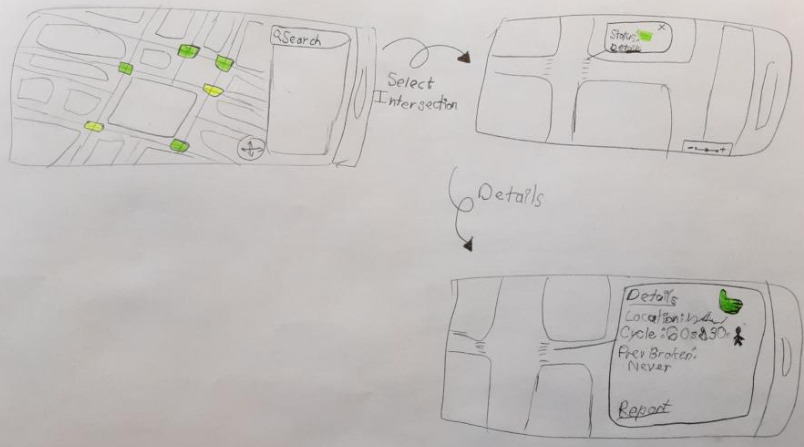 Search
Select
Intersection
Status:
Details
x
- +
Details
Details
Location:
Cycle: 60s 30s
Prev Broken:
Never
Report